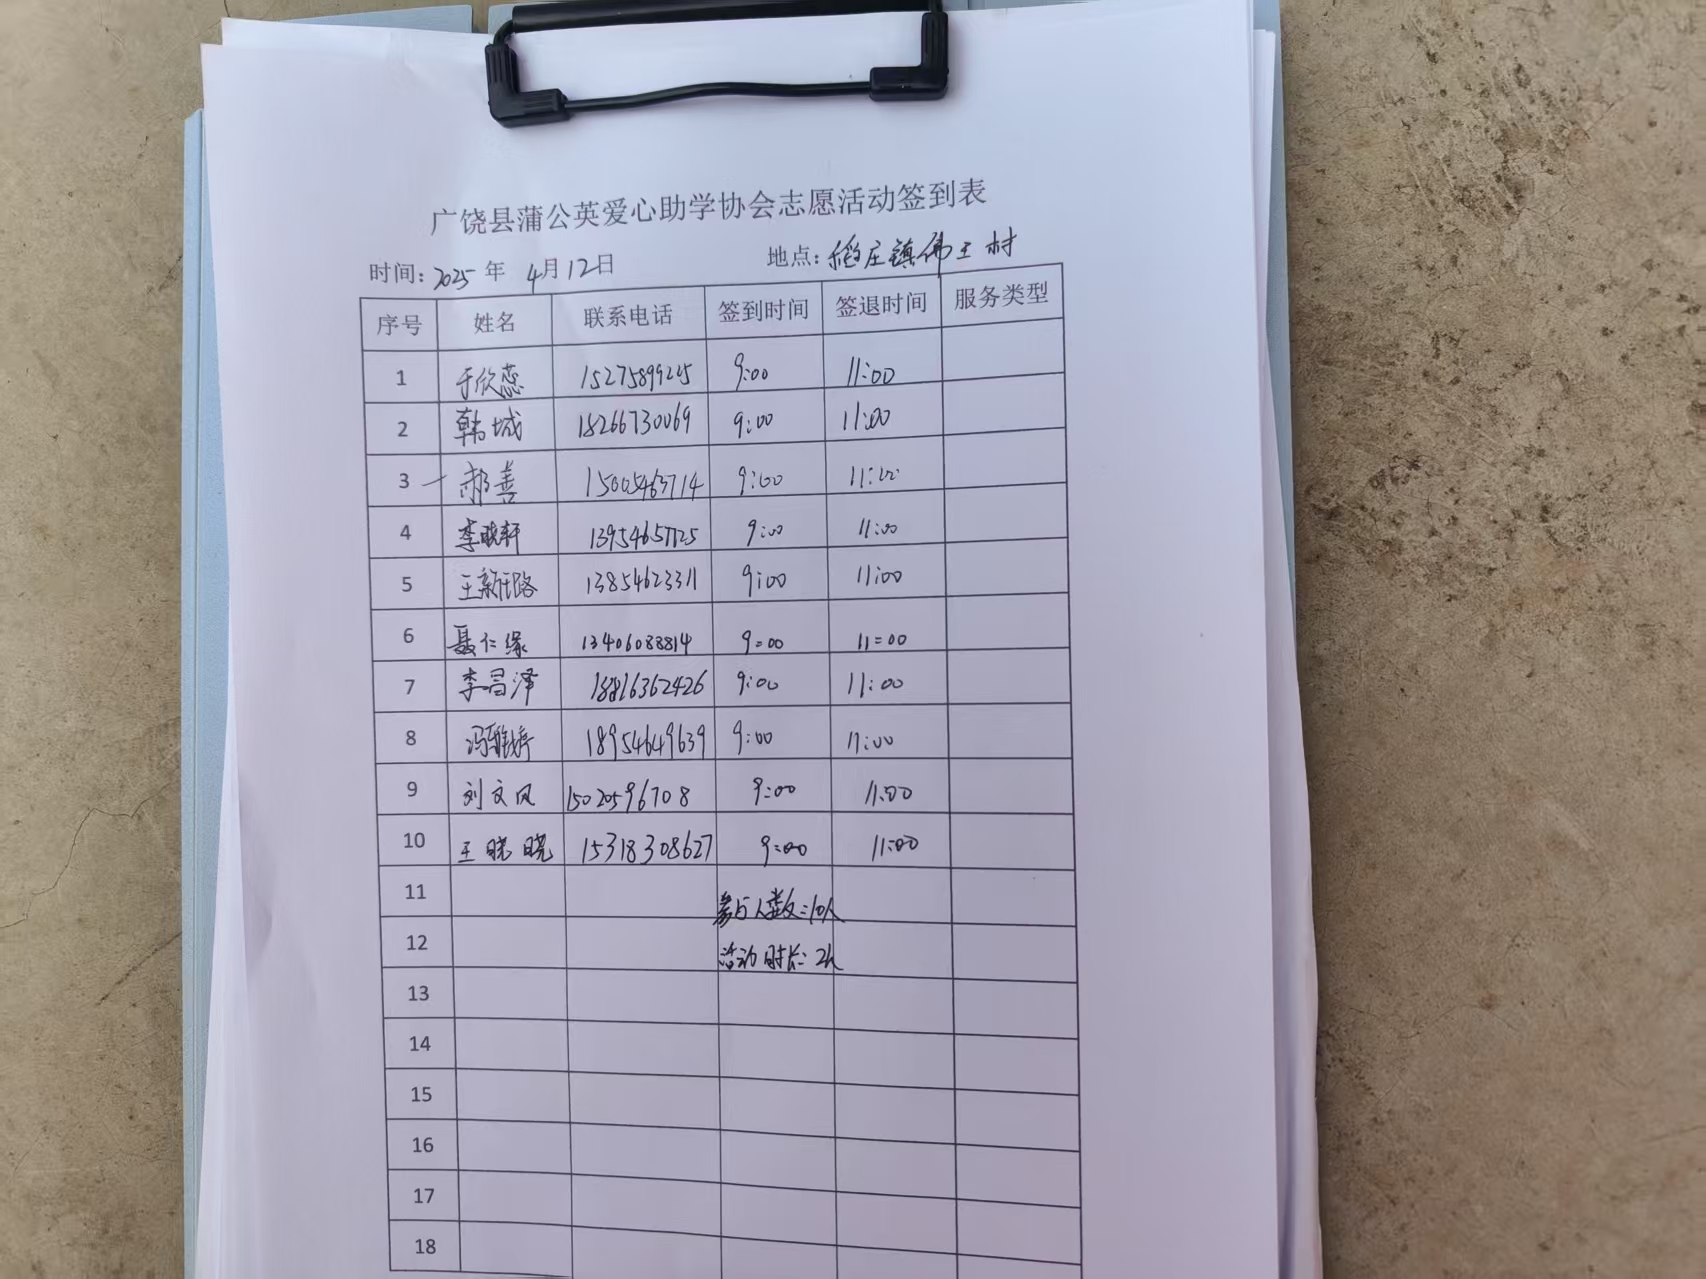 广饶县蒲公英爱心助学协会志愿活动签到表
时间：2025年 4月12日 地点：稻庄镇佛王村
序号 姓名 联系电话 签到时间 签退时间 服务类型
1 于欣蕊 15275899245 9:00 11:00
2 韩城 18266730069 9:00 11:00
3 郝善 15005463714 9:00 11:00
4 李晓轩 13954657725 9:00 11:00
5 13854623311 9:00 11:00
6 聂仁缘 13406088814 9:00 11:00
7 李昌泽 9:00 11:00
8 冯雅婷 18954649639 9:00 11:00
9 刘文凤 15020596708 9:00 11:00
10 王晓晓 15318308627 9:00 11:00
11 参与人数：10人
12 活动时长：2h
13
14
15
16
17
18